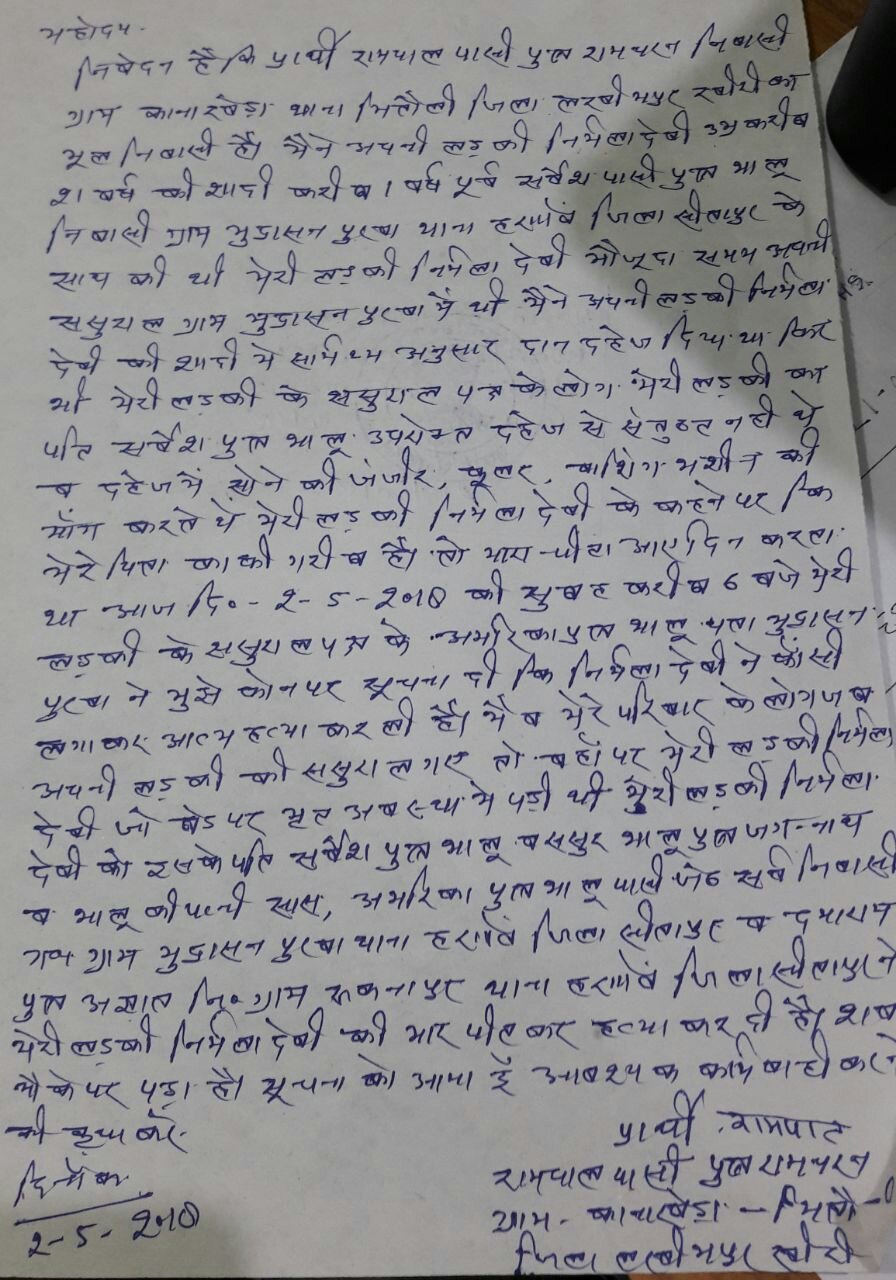 महोदय.
निवेदन है कि प्रार्थी रामपाल पासी पुत्र रामचरन निवासी
ग्राम कानाखेड़ा थाना मितौली जिला लखीमपुर खीरी का
मूल निवासी है। मैने अपनी लड़की निर्मला देवी उम्र करीब
21 वर्ष की शादी करीब 1 वर्ष पूर्व सर्वेश पासी पुत्र भालू
निवासी ग्राम मुद्रासन पुरवा थाना हरगांव जिला सीतापुर के
साथ की थी मेरी लड़की निर्मला देवी मौजूदा समय अपनी
ससुराल ग्राम मुद्रासन पुरवा मे थी मैने अपनी लड़की निर्मला
देवी की शादी मे सामर्थ्य अनुसार दान दहेज दिया था फिर
भी मेरी लड़की के ससुराल पक्ष के लोग मेरी लड़की का
पति सर्वेश पुत्र भालू उपरोक्त दहेज से संतुष्ट नही थे
व दहेज मे सोने की जंजीर, कूलर, वाशिंग मशीन की
माँग करते थे मेरी लड़की निर्मला देवी के कहने पर कि
मेरे पिता काफी गरीब है। तो मारा पीटा आए दिन करता
था आज दि०- 2-5-2018 को सुबह करीब 6 बजे मेरी
लड़की के ससुराल पक्ष के अमरिका पुत्र भालू पता मुद्रासन
पुरवा ने मुझे फोन पर सूचना दी कि निर्मला देवी ने फाँसी
लगाकर आत्महत्या कर ली है। मै व मेरे परिवार के लोग जब
अपनी लड़की की ससुराल गए तो वहाँ पर मेरी लड़की निर्मला
देवी जो बेड पर मृत अवस्था मे पड़ी थी मेरी लड़की निर्मला
देवी को इसके पति सर्वेश पुत्र भालू व ससुर भालू पुत्र जगन्नाथ
व भालू की पत्नी सास, अमरिका पुत्र भालू पासी जेठ सर्व निवासी
गण ग्राम मुद्रासन पुरवा थाना हरगांव जिला सीतापुर व दयाराम
पुत्र अज्ञात नि० ग्राम रुकनापुर थाना हरगांव जिला सीतापुर ने
मेरी लड़की निर्मला देवी की मार पीट कर हत्या कर दी है। शव
मौके पर पड़ा है। सूचना को आया हूँ आवश्यक कार्यवाही करने
की कृपा करें.
प्रार्थी रामपाल
रामपाल पासी पुत्र रामचरन
ग्राम - कानाखेड़ा - मितौली
जिला लखीमपुर खीरी
दिनाँक
2-5-2018